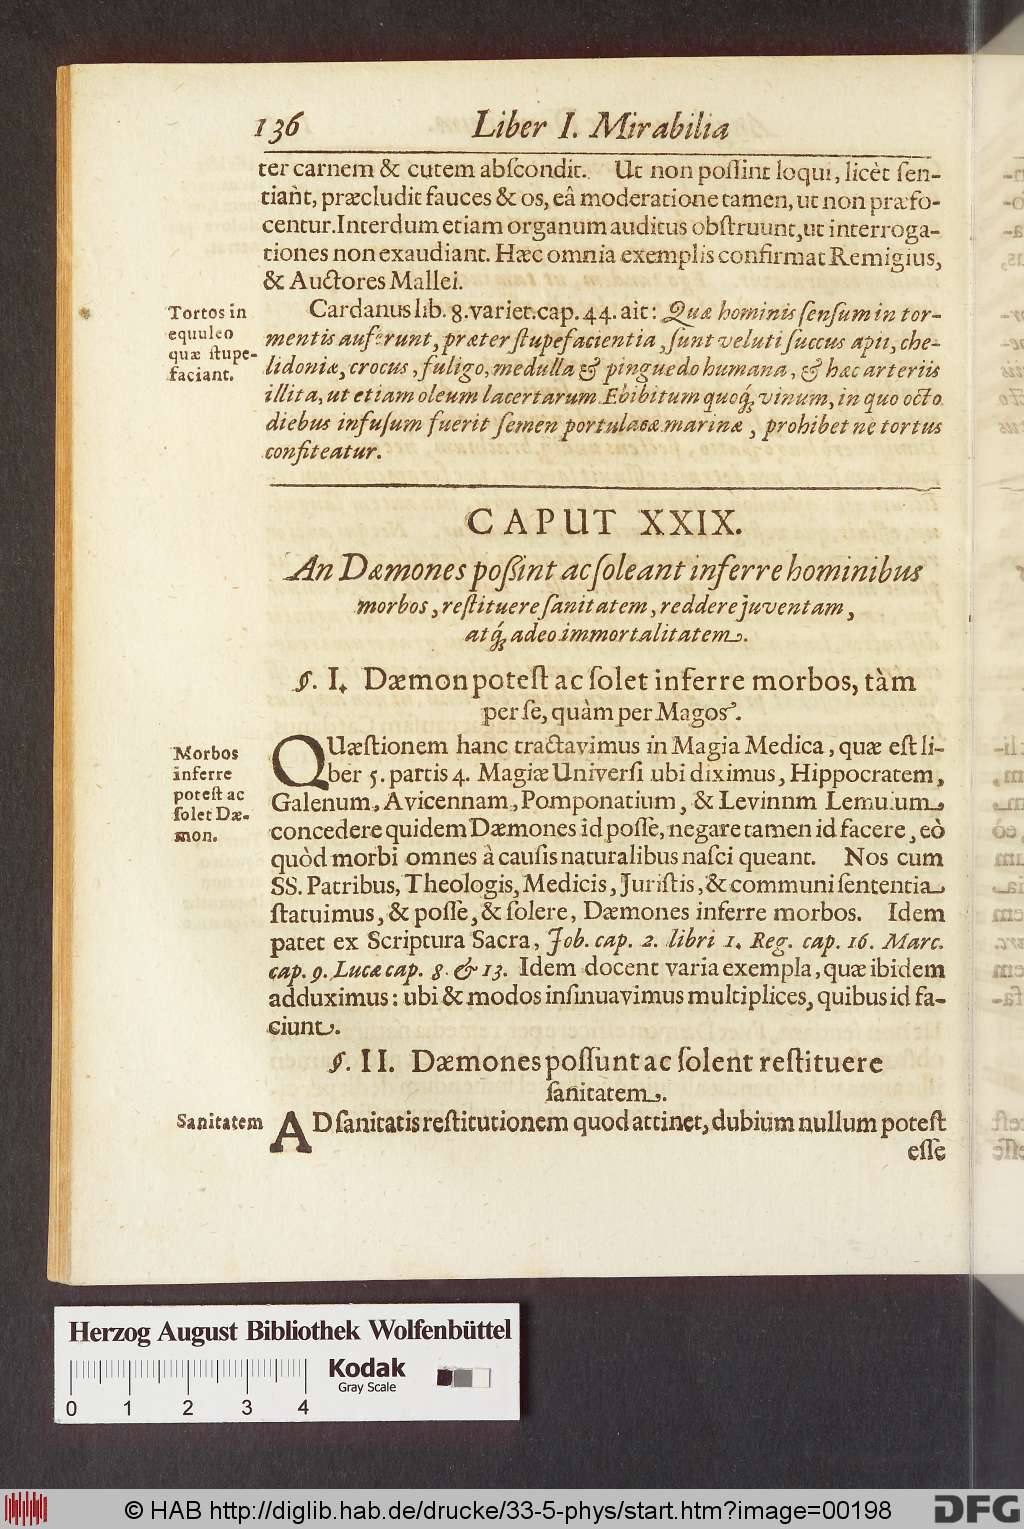 136 Liber I. Mirabilia
ter carnem & cutem abſcondit. Ut non poſſint loqui, licèt ſen-
tiant, præcludit fauces & os, eâ moderatione tamen, ut non præfo-
centur. Interdum etiam organum auditus obſtruunt, ut interroga-
tiones non exaudiant. Hæc omnia exemplis confirmat Remigius,
& Auctores Mallei.
Tortos in
equuleo
quæ ſtupe-
faciant.
Cardanus lib. 8. variet. cap. 44. ait: Quæ hominis ſenſum in tor-
mentis auferunt, præter ſtupefacientia, ſunt veluti ſuccus apii, che-
lidoniæ, crocus, fuligo, medulla & pinguedo humana, & hæc arteriis
illita, ut etiam oleum lacertarum. Ebibitum quoq́; vinum, in quo octo
diebus infuſum fuerit ſemen portulacæ marinæ, prohibet ne tortus
confiteatur.
CAPUT XXIX.
An Dæmones poßint ac ſoleant inferre hominibus
morbos, reſtituere ſanitatem, reddere juventam,
atq́; adeo immortalitatem.
§. I. Dæmon poteſt ac ſolet inferre morbos, tàm
per ſe, quàm per Magos.
Morbos
inferre
poteſt ac
ſolet Dæ-
mon.
QUæſtionem hanc tractavimus in Magia Medica, quæ eſt li-
ber 5. partis 4. Magiæ Univerſi ubi diximus, Hippocratem,
Galenum, Avicennam, Pomponatium, & Levinnm Lemnium,
concedere quidem Dæmones id poſſe, negare tamen id facere, eò
quòd morbi omnes à cauſis naturalibus naſci queant. Nos cum
SS. Patribus, Theologis, Medicis, Juriſtis, & communi ſententia
ſtatuimus, & poſſe, & ſolere, Dæmones inferre morbos. Idem
patet ex Scriptura Sacra, Job. cap. 2. libri 1. Reg. cap. 16. Marc.
cap. 9. Lucæ cap. 8. & 13. Idem docent varia exempla, quæ ibidem
adduximus: ubi & modos inſinuavimus multiplices, quibus id fa-
ciunt.
§. II. Dæmones poſſunt ac ſolent reſtituere
ſanitatem.
Sanitatem
AD ſanitatis reſtitutionem quod attinet, dubium nullum poteſt
eſſe
Herzog August Bibliothek Wolfenbüttel
Kodak
Gray Scale
0 1 2 3 4
© HAB http://diglib.hab.de/drucke/33-5-phys/start.htm?image=00198
DFG